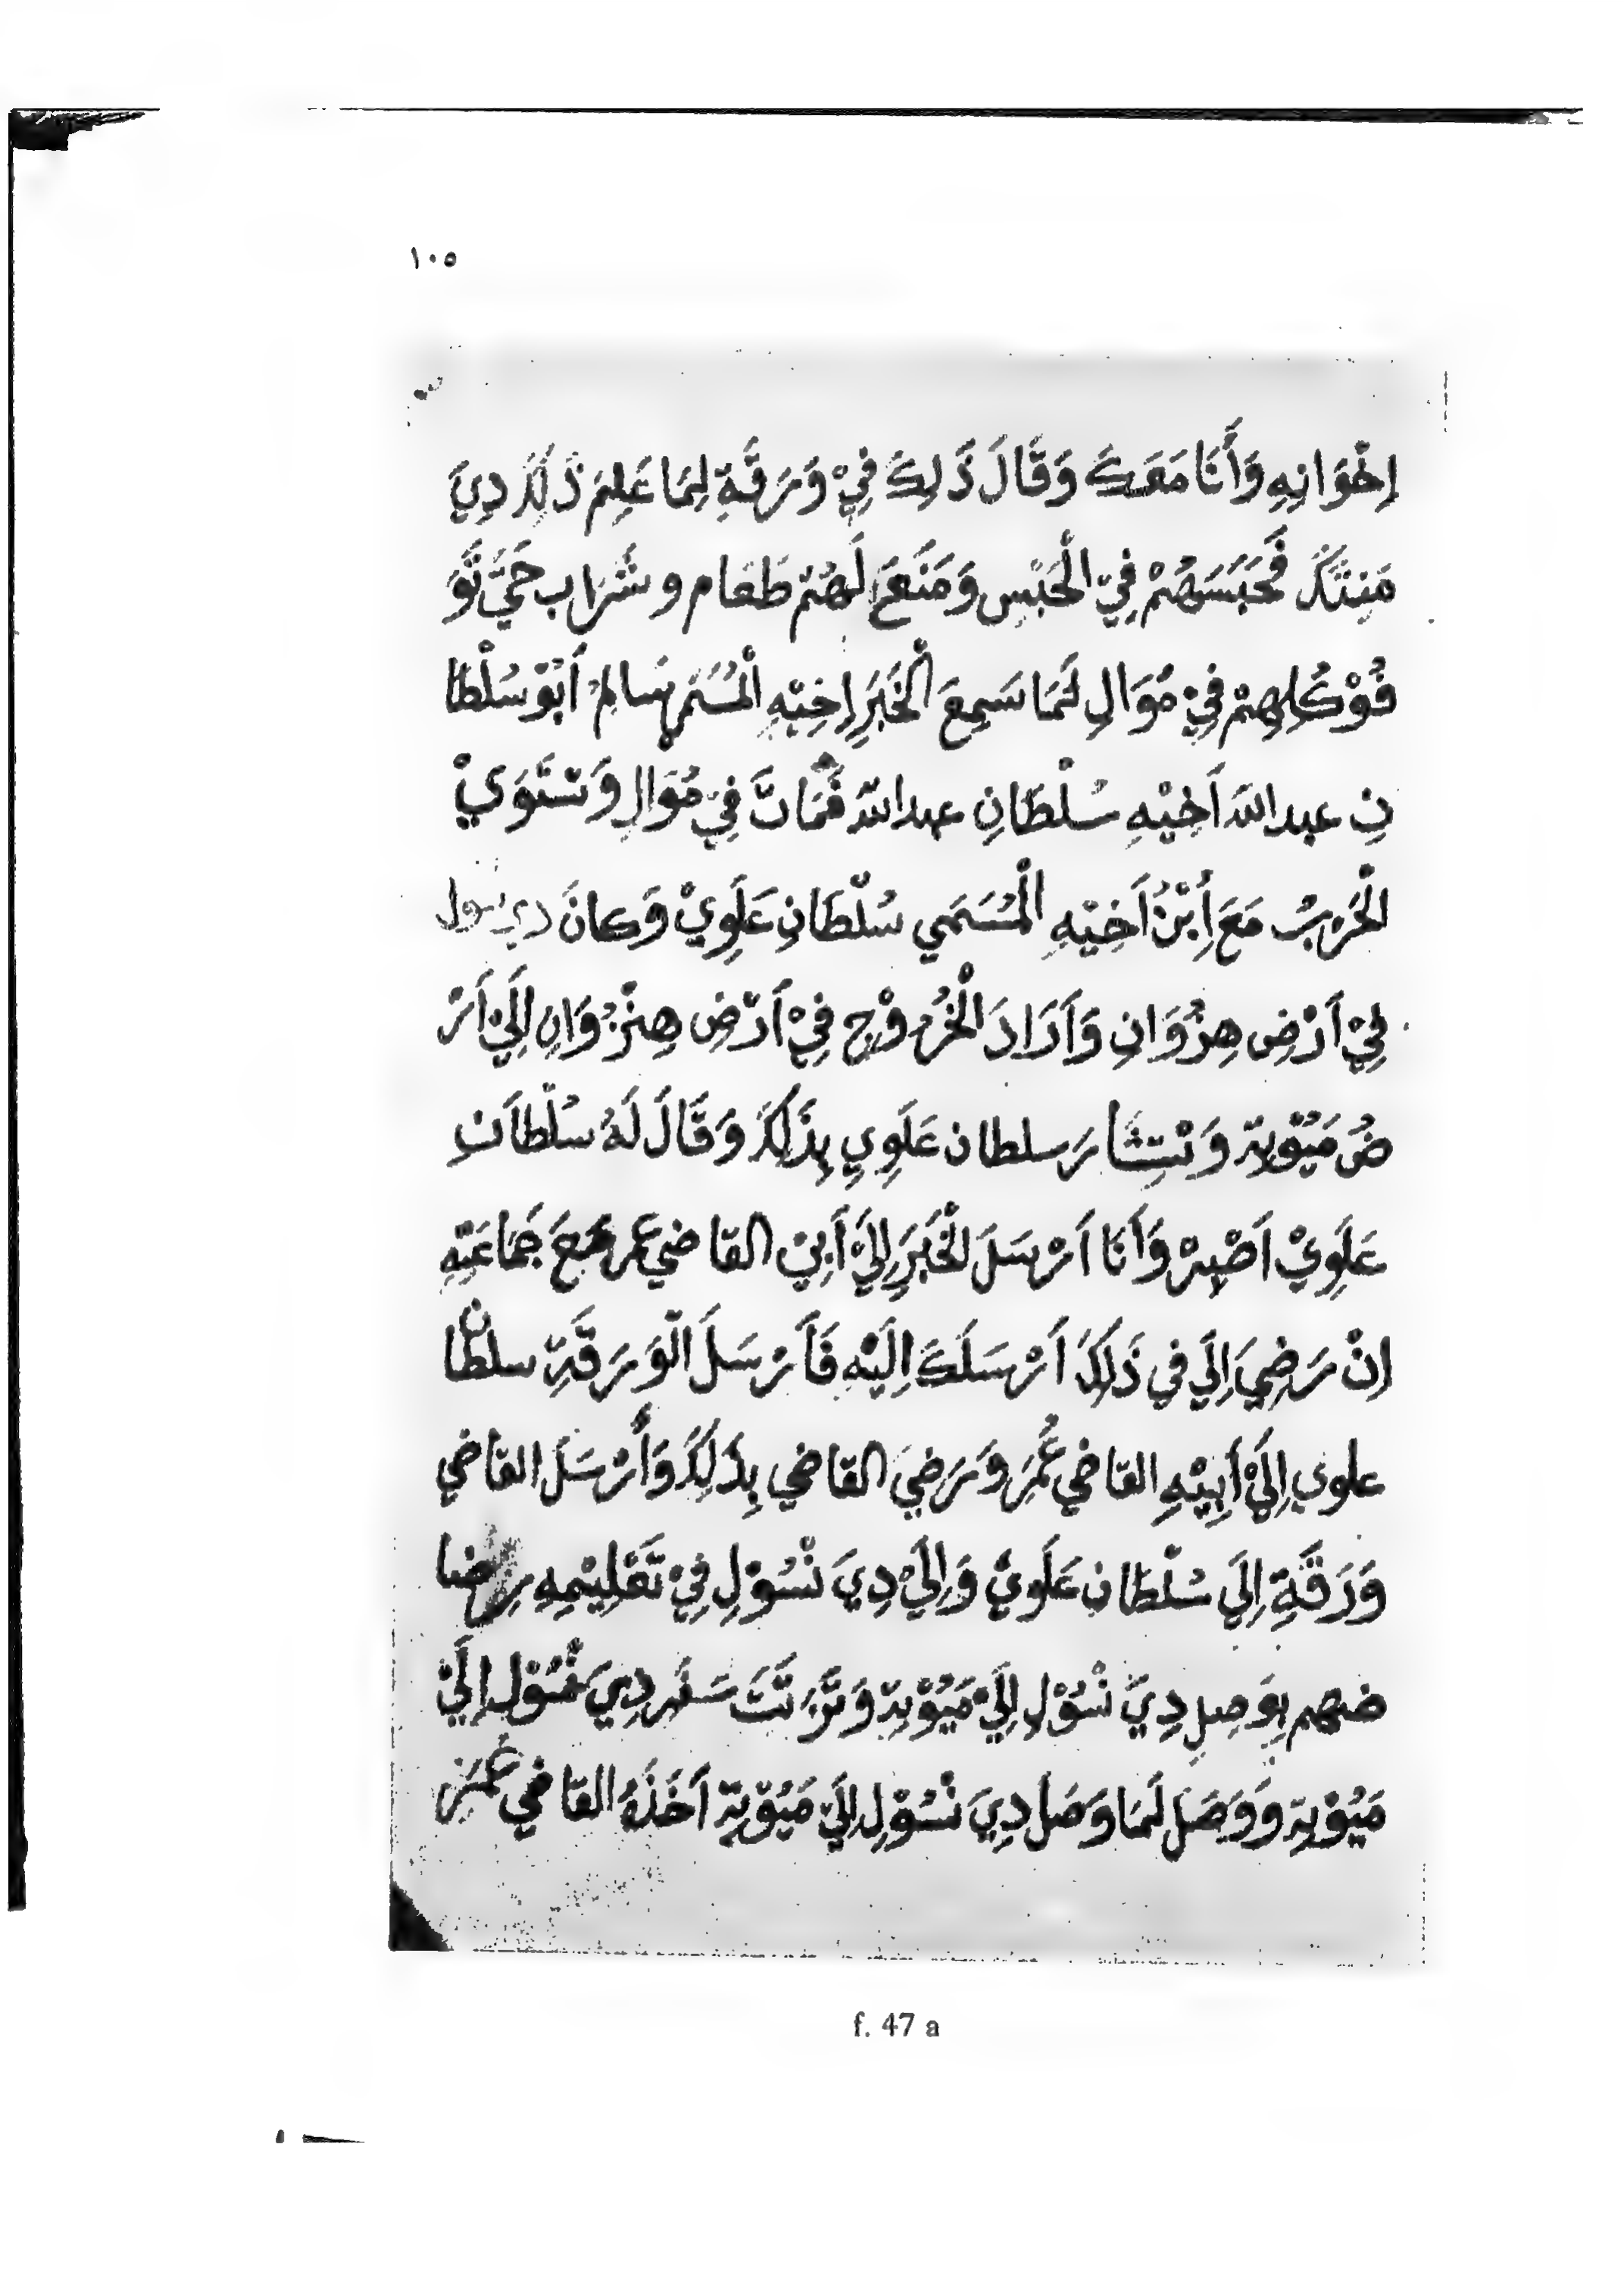 ١٠٥
إِخْوَانِهِ وَأَنَا مَعَكَ وَقَالَ ذَلِكَ فِيْ وَرَقَّةِ لِمَا عَلِمَ ذَلِكَ دِيَ
مَنِنَكَ فَحَبَسَهُمْ فِيْ الْحَبْسِ وَمَنَعَ لَهُمْ طَعَام و شَرَاب حَيَّ تَّوَ
فُوْ كُلِهِمْ فِيْ مُوَالِ لَمَا سَمِعَ الْخَبَرِ إِخِيْهِ الْمُسَمَي سَالِمْ أَبُوْ سُلْطَا
نِ عبد الله أَخِيْهِ سُلْطَانِ عبد الله فَمَاتَّ فِيْ مُوَالِ وَسْتَوَيْ
الْحَرْبُ مَعَ اِبْنُ أَخِيْهِ الْمُسَمَي سُلْطَانِ عَلَوِيْ وَكَانَ دي نسول
فِيْ أَرْضِ هِزُوَانِ وَأَرَادَ الْخُرُوْجِ فِيْ أَرْضِ هِنْزُوَانِ إِلَيْ أَرْ
ضُ مَيُوْتِة وَنْتِشَارَ سلطان عَلَوِيِ بِذَلِكَ وَقَالَ لَهُ سُلْطَانِ
عَلَوِيْ أَصْبِرْ وَأَنَا أَرْسَلَ لْخَبَرِ إِلَيْ أَبِيْ القاضي عمر مَعَ جَمَاعَتِهِ
اِنْ رَضِيَ اِلَي في ذَلِكَ أَرْسَلَكَ اِلَيْهِ فَأَرْسَلَ الْوَرَقَّةِ سلطان
علوي اِلَيْ أَبِيْهِ القاضي عُمَرَ وَرَضِيَ القاضي بِذَلِكَ وَأَرْسَلَ القاضي
وَرَقَةِ اِلَي سُلْطَانِ عَلَوِيْ وَاِلَيْ دِيَ نْسُوْلِ فِيْ تَّقْلِيْمِهِ رِضا
ضهم بِوَصِلِ دِيَ نْسُوْلِ اِلَيْ مَيُوْتِة وَنَّزَلَتَّ سَفَر دِيَ نْسُوْلِ اِلَيْ
مَيُوْتِة وَوَصَلَ لَمَا وَصَلَ دِيَ نْسُوْلِ اِلَيْ مَيُوْتِة أَخَذَهُ القاضي عُمَرَ
f. 47 a